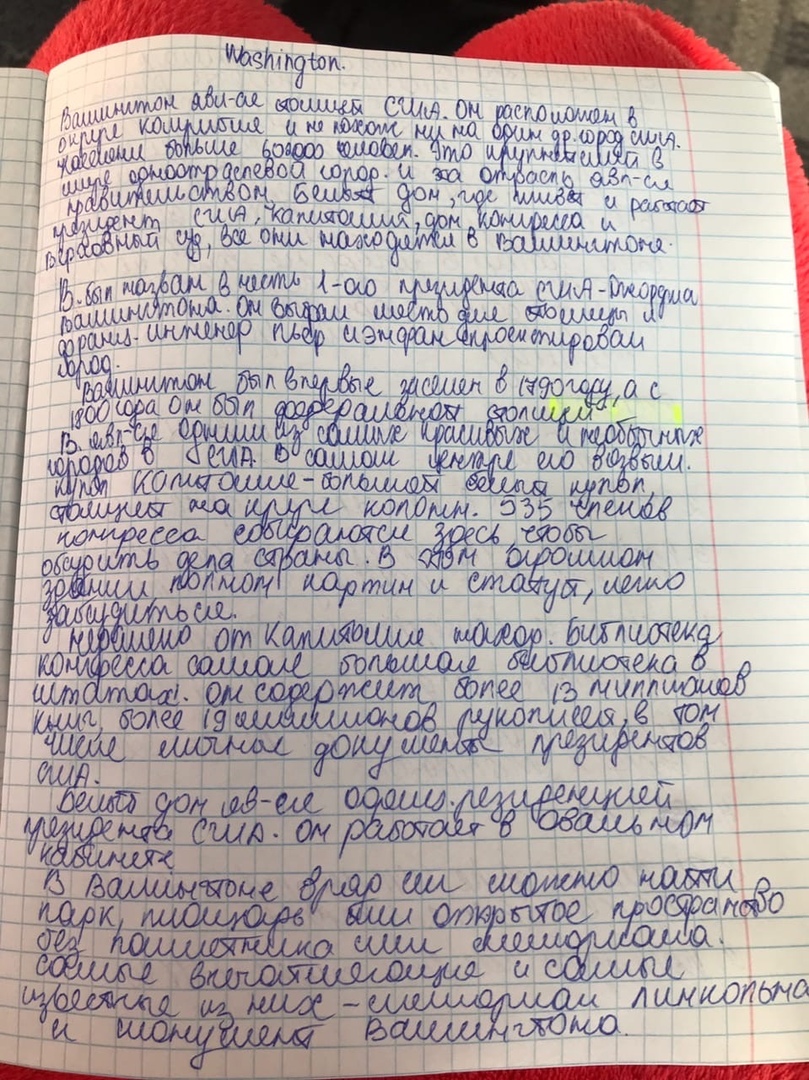 Washington.
Вашингтон явл-ся столицей США. Он расположен в
округе Колумбия и не похож ни на один др. город США.
население больше 600000 человек. Это крупнейший в
мире одноотраслевой город. и эта отрасль явл-ся
правительством. Белый дом, где живёт и работает
президент США, Капитолий, дом конгресса и
Верховный суд, все они находятся в Вашингтоне.
В. был назван в честь 1-ого президента США-Джорджа
Вашингтона. Он выбрал место для столицы и
франц. инженер Пьер спроектировал
город.
Вашингтон был впервые заселен в 1790 году, а с
1800 года он был федеральной столицей
В. явл-ся одним из самых красивых и необычных
городов в США. В самом центре его возвыш.
купол Капитолия-большой белый купол,
стоящий на круге колонн. 535 членов
конгресса собираются здесь, чтобы
обсудить дела страны. В этом огромном
здании полном картин и статуй, легко
заблудиться.
Недалеко от Капитолия наход. Библиотека
конгресса самая большая библиотека в
штатах. он содержит более 13 миллионов
книг, более 19 миллионов рукописей, в том
числе личные документы президентов
США.
Белый дом яв-ся резиденцией
президента США. Он работает в Овальном
кабинете
В Вашингтоне вряд ли можно найти
парк, площадь или открытое пространство
без памятника или мемориала.
самые впечатляющие и самые
известные из них - мемориал Линкольна
и монумент Вашингтона.